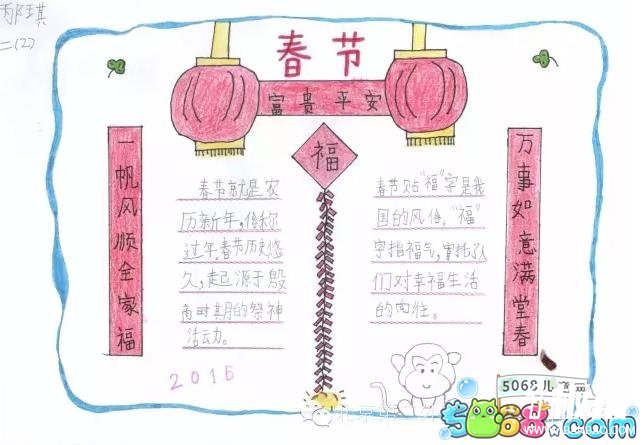 二(2)
春节
富贵平安
福
一帆风顺全家福
万事如意满堂春
春节就是农
历新年,俗称
过年。春节历史悠
久,起源于殷
商时期的祭神
活动。
春节贴“福”字是我
国的风俗。“福”
字指福气,寄托了人
们对幸福生活
的向往。
2016
5068儿童网
5068.com